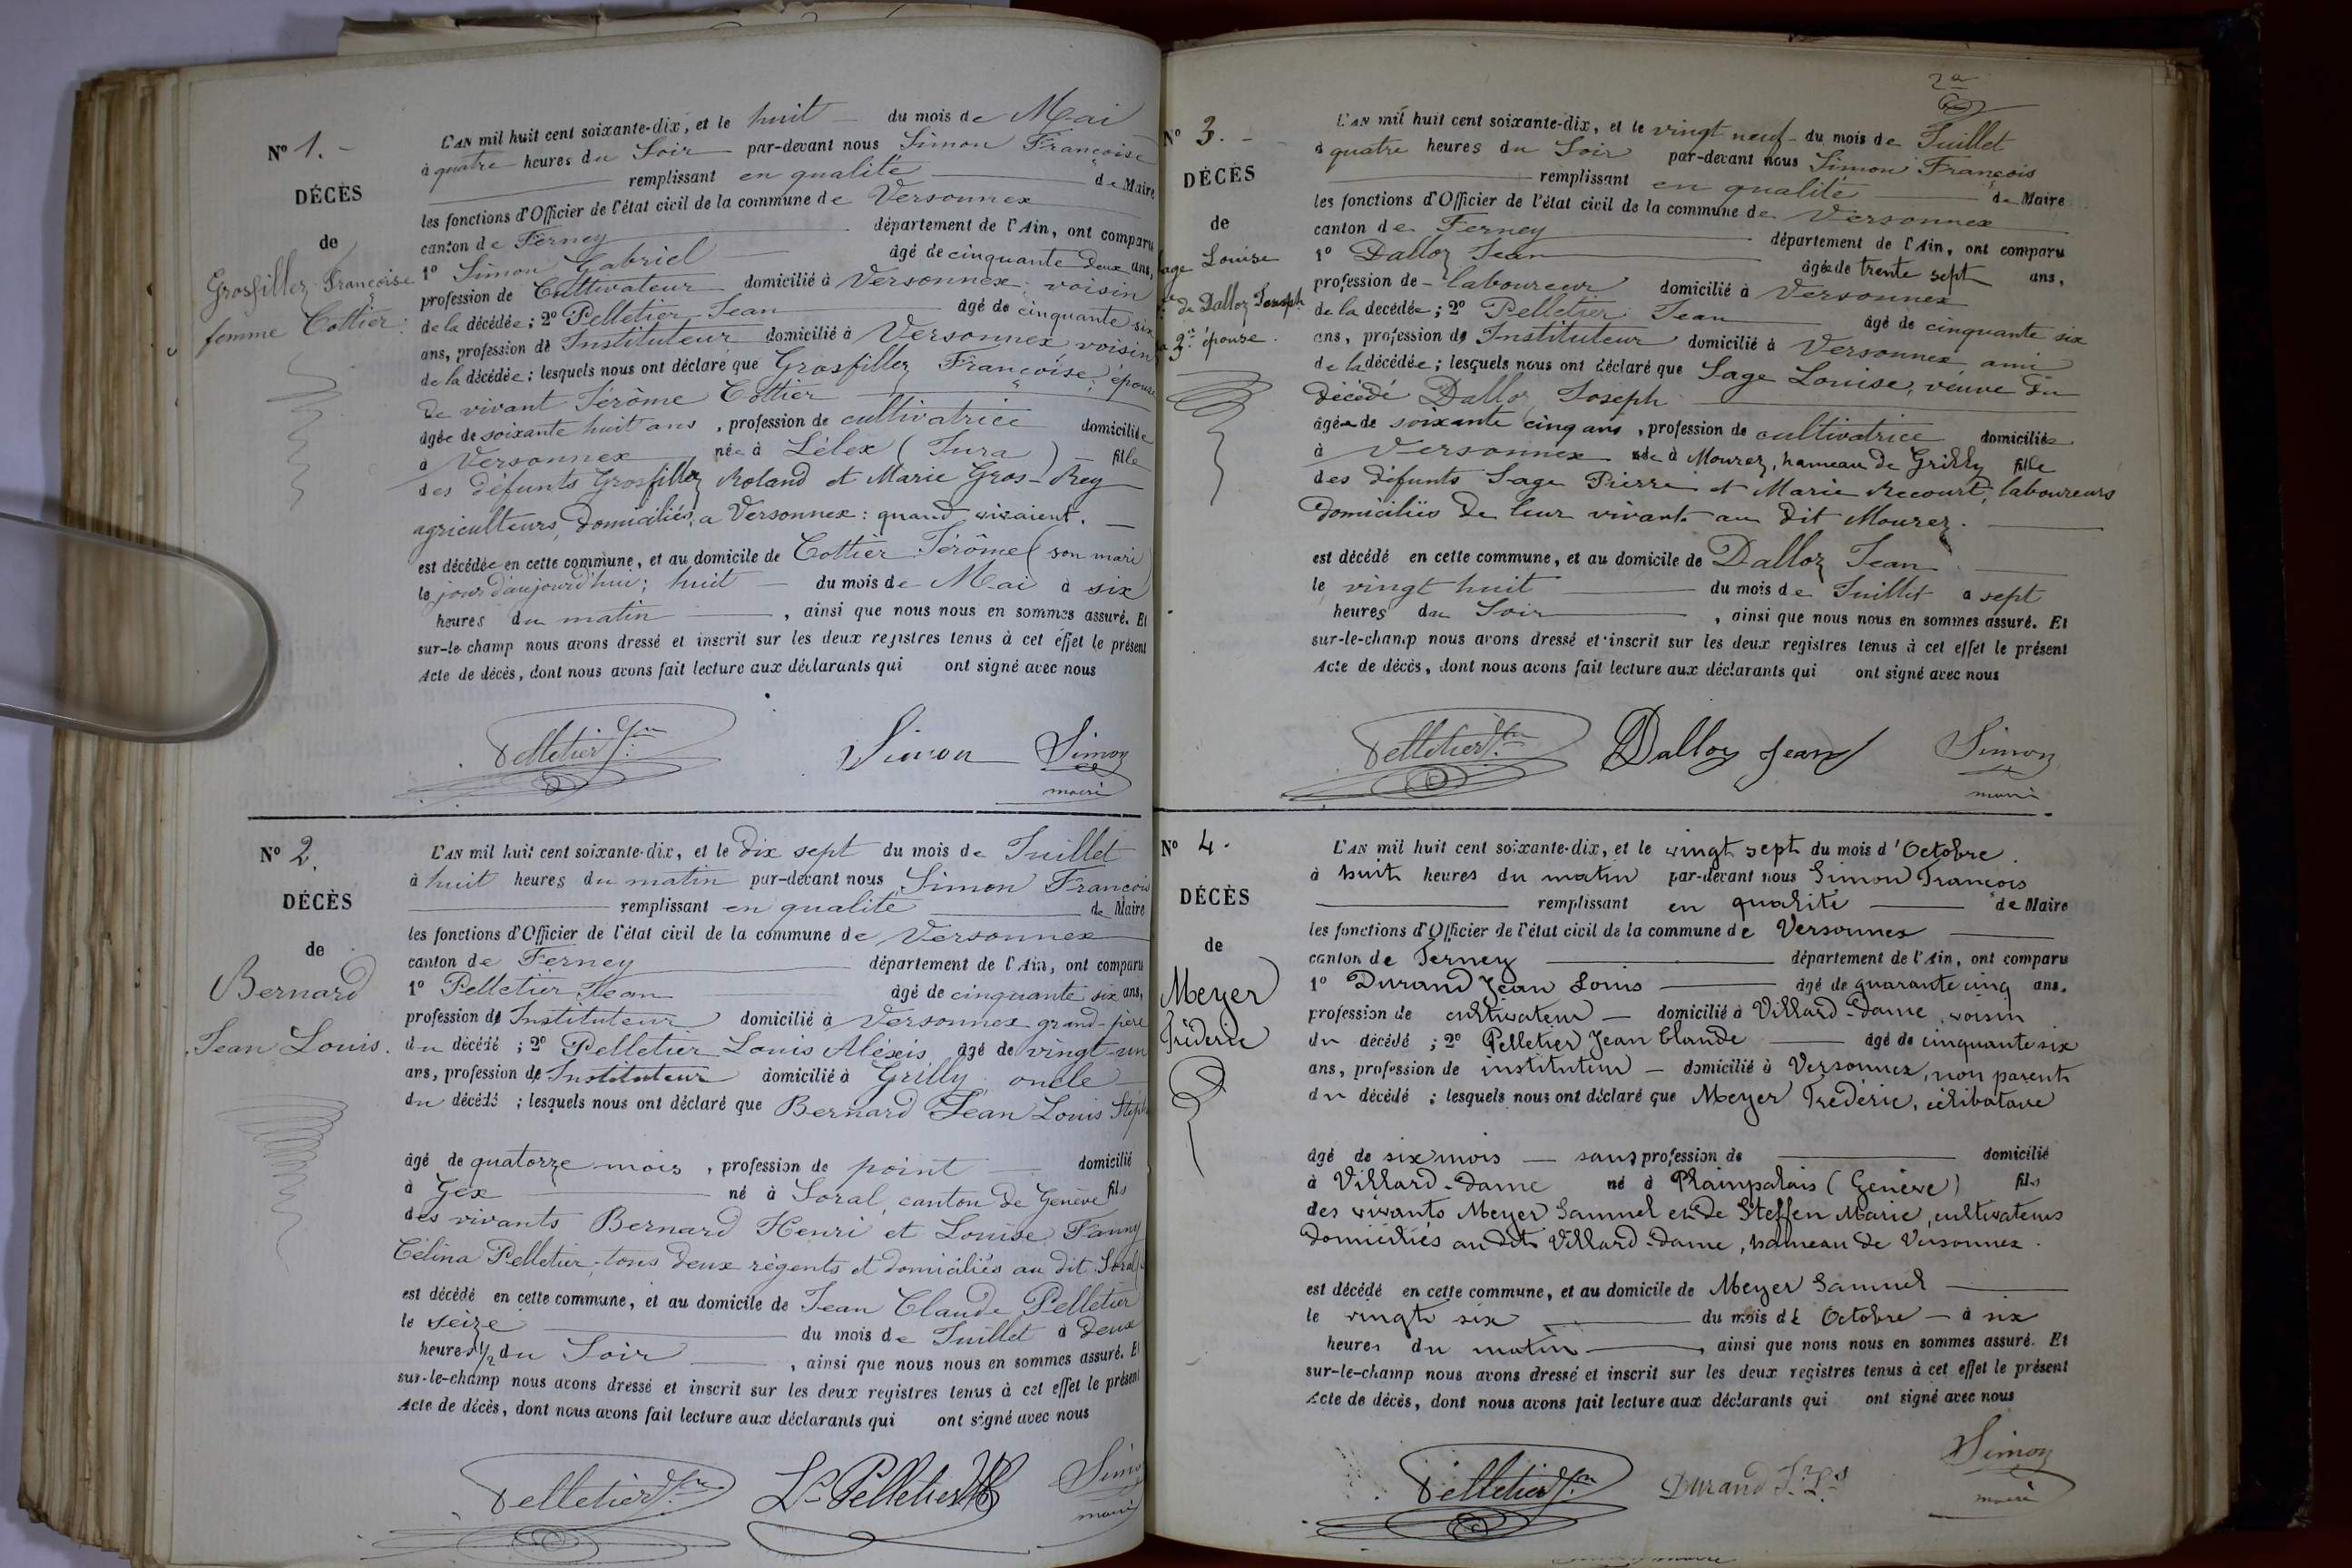 N° 1. -
DÉCÈS
de
Grosfillez Françoise
femme Cottier.
L'AN mil huit cent soixante-dix, et le huit — du mois de Mai
à quatre heures du Soir — par-devant nous Simon François
— remplissant en qualité — de Maire
les fonctions d'Officier de l'état civil de la commune de Versonnex
canton de Ferney — département de l'Ain, ont comparu
1° Simon Gabriel — âgé de cinquante deux ans,
profession de Cultivateur domicilié à Versonnex voisin
de la décédée; 2° Pelletier Jean — âgé de cinquante six
ans, profession de Instituteur domicilié à Versonnex voisin
de la décédée; lesquels nous ont déclaré que Grosfillez Françoise, épouse
de vivant Jérôme Cottier —
âgée de soixante huit ans, profession de cultivatrice domiciliée
à Versonnex née à Lélex (Jura) — fille
des défunts Grosfillez Roland et Marie Gros-Rey
agriculteurs, domiciliés, a Versonnex: quand vivaient. —
est décédée en cette commune, et au domicile de Cottier Jérôme (son mari)
le jour d'aujourd'hui; huit — du mois de Mai à six
heures du matin —, ainsi que nous nous en sommes assuré. Et
sur-le-champ nous avons dressé et inscrit sur les deux registres tenus à cet effet le présent
Acte de décès, dont nous avons fait lecture aux déclarants qui ont signé avec nous
Pelletier Jn Simon Simon
maire
N° 2.
DÉCÈS
de
Bernard
Jean Louis.
L'AN mil huit cent soixante-dix, et le dix sept du mois de Juillet
à huit heures du matin par-devant nous Simon François
— remplissant en qualité — de Maire
les fonctions d'Officier de l'état civil de la commune de Versonnex
canton de Ferney — département de l'Ain, ont comparu
1° Pelletier Jean — âgé de cinquante six ans,
profession de Instituteur domicilié à Versonnex grand-père
du décédé; 2° Pelletier Louis Aléxis âgé de vingt-un
ans, profession de Instituteur domicilié à Grilly oncle
du décédé; lesquels nous ont déclaré que Bernard Jean Louis
âgé de quatorze mois, profession de point — domicilié
à Gex — né à Soral, canton de Genève fils
des vivants Bernard Henri et Louise Fanny
Célina Pelletier, tous deux régents et domiciliés au dit Soral
est décédé en cette commune, et au domicile de Jean Claude Pelletier
le seize — du mois de Juillet à deux
heures 1/2 du Soir —, ainsi que nous nous en sommes assuré. Et
sur-le-champ nous avons dressé et inscrit sur les deux registres tenus à cet effet le présent
Acte de décès, dont nous avons fait lecture aux déclarants qui ont signé avec nous
Pelletier Jn Ls Pelletier Simon
maire
2e
N° 3. -
DÉCÈS
de
Sage Louise
de Dalloz Joseph
2e épouse.
L'AN mil huit cent soixante-dix, et le vingt neuf - du mois de Juillet
à quatre heures du Soir par-devant nous Simon François
— remplissant en qualité — de Maire
les fonctions d'Officier de l'état civil de la commune de Versonnex
canton de Ferney — département de l'Ain, ont comparu
1° Dalloz Jean — âgé de trente sept ans,
profession de - laboureur domicilié à Versonnex
de la décédée; 2° Pelletier Jean — âgé de cinquante six
ans, profession de Instituteur domicilié à Versonnex ami
de la décédée; lesquels nous ont déclaré que Sage Louise, veuve du
décédé Dalloz Joseph —
âgée de soixante cinq ans, profession de cultivatrice domiciliée
à Versonnex née à Mourez, hameau de Grilly fille
des défunts Sage Pierre et Marie Recourt, laboureurs
domiciliés de leur vivant au dit Mourez. —
est décédé en cette commune, et au domicile de Dalloz Jean —
le vingt huit — du mois de Juillet à sept
heures du Soir —, ainsi que nous nous en sommes assuré. Et
sur-le-champ nous avons dressé et inscrit sur les deux registres tenus à cet effet le présent
Acte de décès, dont nous avons fait lecture aux déclarants qui ont signé avec nous
Pelletier Jn Dalloz Jean Simon
maire
N° 4.
DÉCÈS
de
Meyer
Fréderic
L'AN mil huit cent soixante-dix, et le vingt sept du mois d'Octobre.
à huit heures du matin par-devant nous Simon François
— remplissant en qualité — de Maire
les fonctions d'Officier de l'état civil de la commune de Versonnex —
canton de Ferney — département de l'Ain, ont comparu
1° Durand Jean Louis — âgé de quarante cinq ans,
profession de cultivateur — domicilié à Villard-Dame, voisin
du décédé; 2° Pelletier Jean Claude — âgé de cinquante six
ans, profession de instituteur — domicilié à Versonnex, non parent
du décédé; lesquels nous ont déclaré que Meyer Fréderic, célibataire
âgé de six mois — sans profession de — domicilié
à Villard-Dame né à Plainpalais (Genève) fils
des vivants Meyer Samuel et de Steffen Marie, cultivateurs
domiciliés au dit Villard-Dame, hameau de Versonnex.
est décédé en cette commune, et au domicile de Meyer Samuel —
le vingt six — du mois de Octobre — à six
heures du matin —, ainsi que nous nous en sommes assuré. Et
sur-le-champ nous avons dressé et inscrit sur les deux registres tenus à cet effet le présent
Acte de décès, dont nous avons fait lecture aux déclarants qui ont signé avec nous
Pelletier Jn Durand Jn Ls Simon
maire